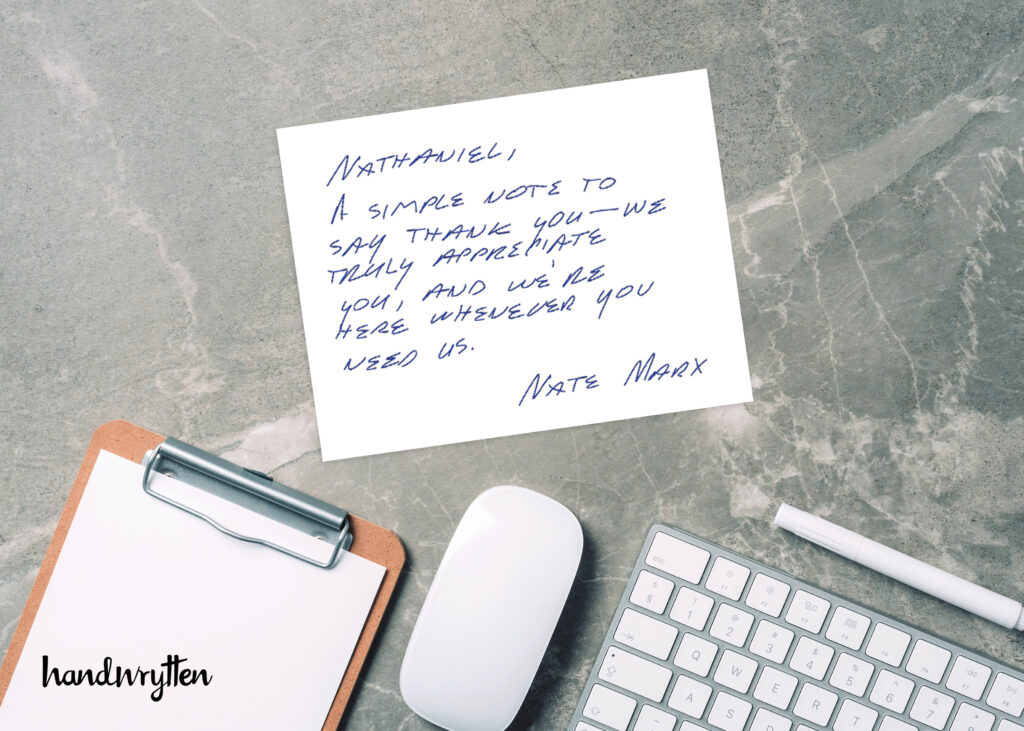 NATHANIEL,
A SIMPLE NOTE TO
SAY THANK YOU—WE
TRULY APPRECIATE
YOU, AND WE'RE
HERE WHENEVER YOU
NEED US.
NATE MARX
handwrytten
esc
! 1
@ 2
# 3
$ 4
% 5
^ 6
& 7
*
Q W E R T
A S D